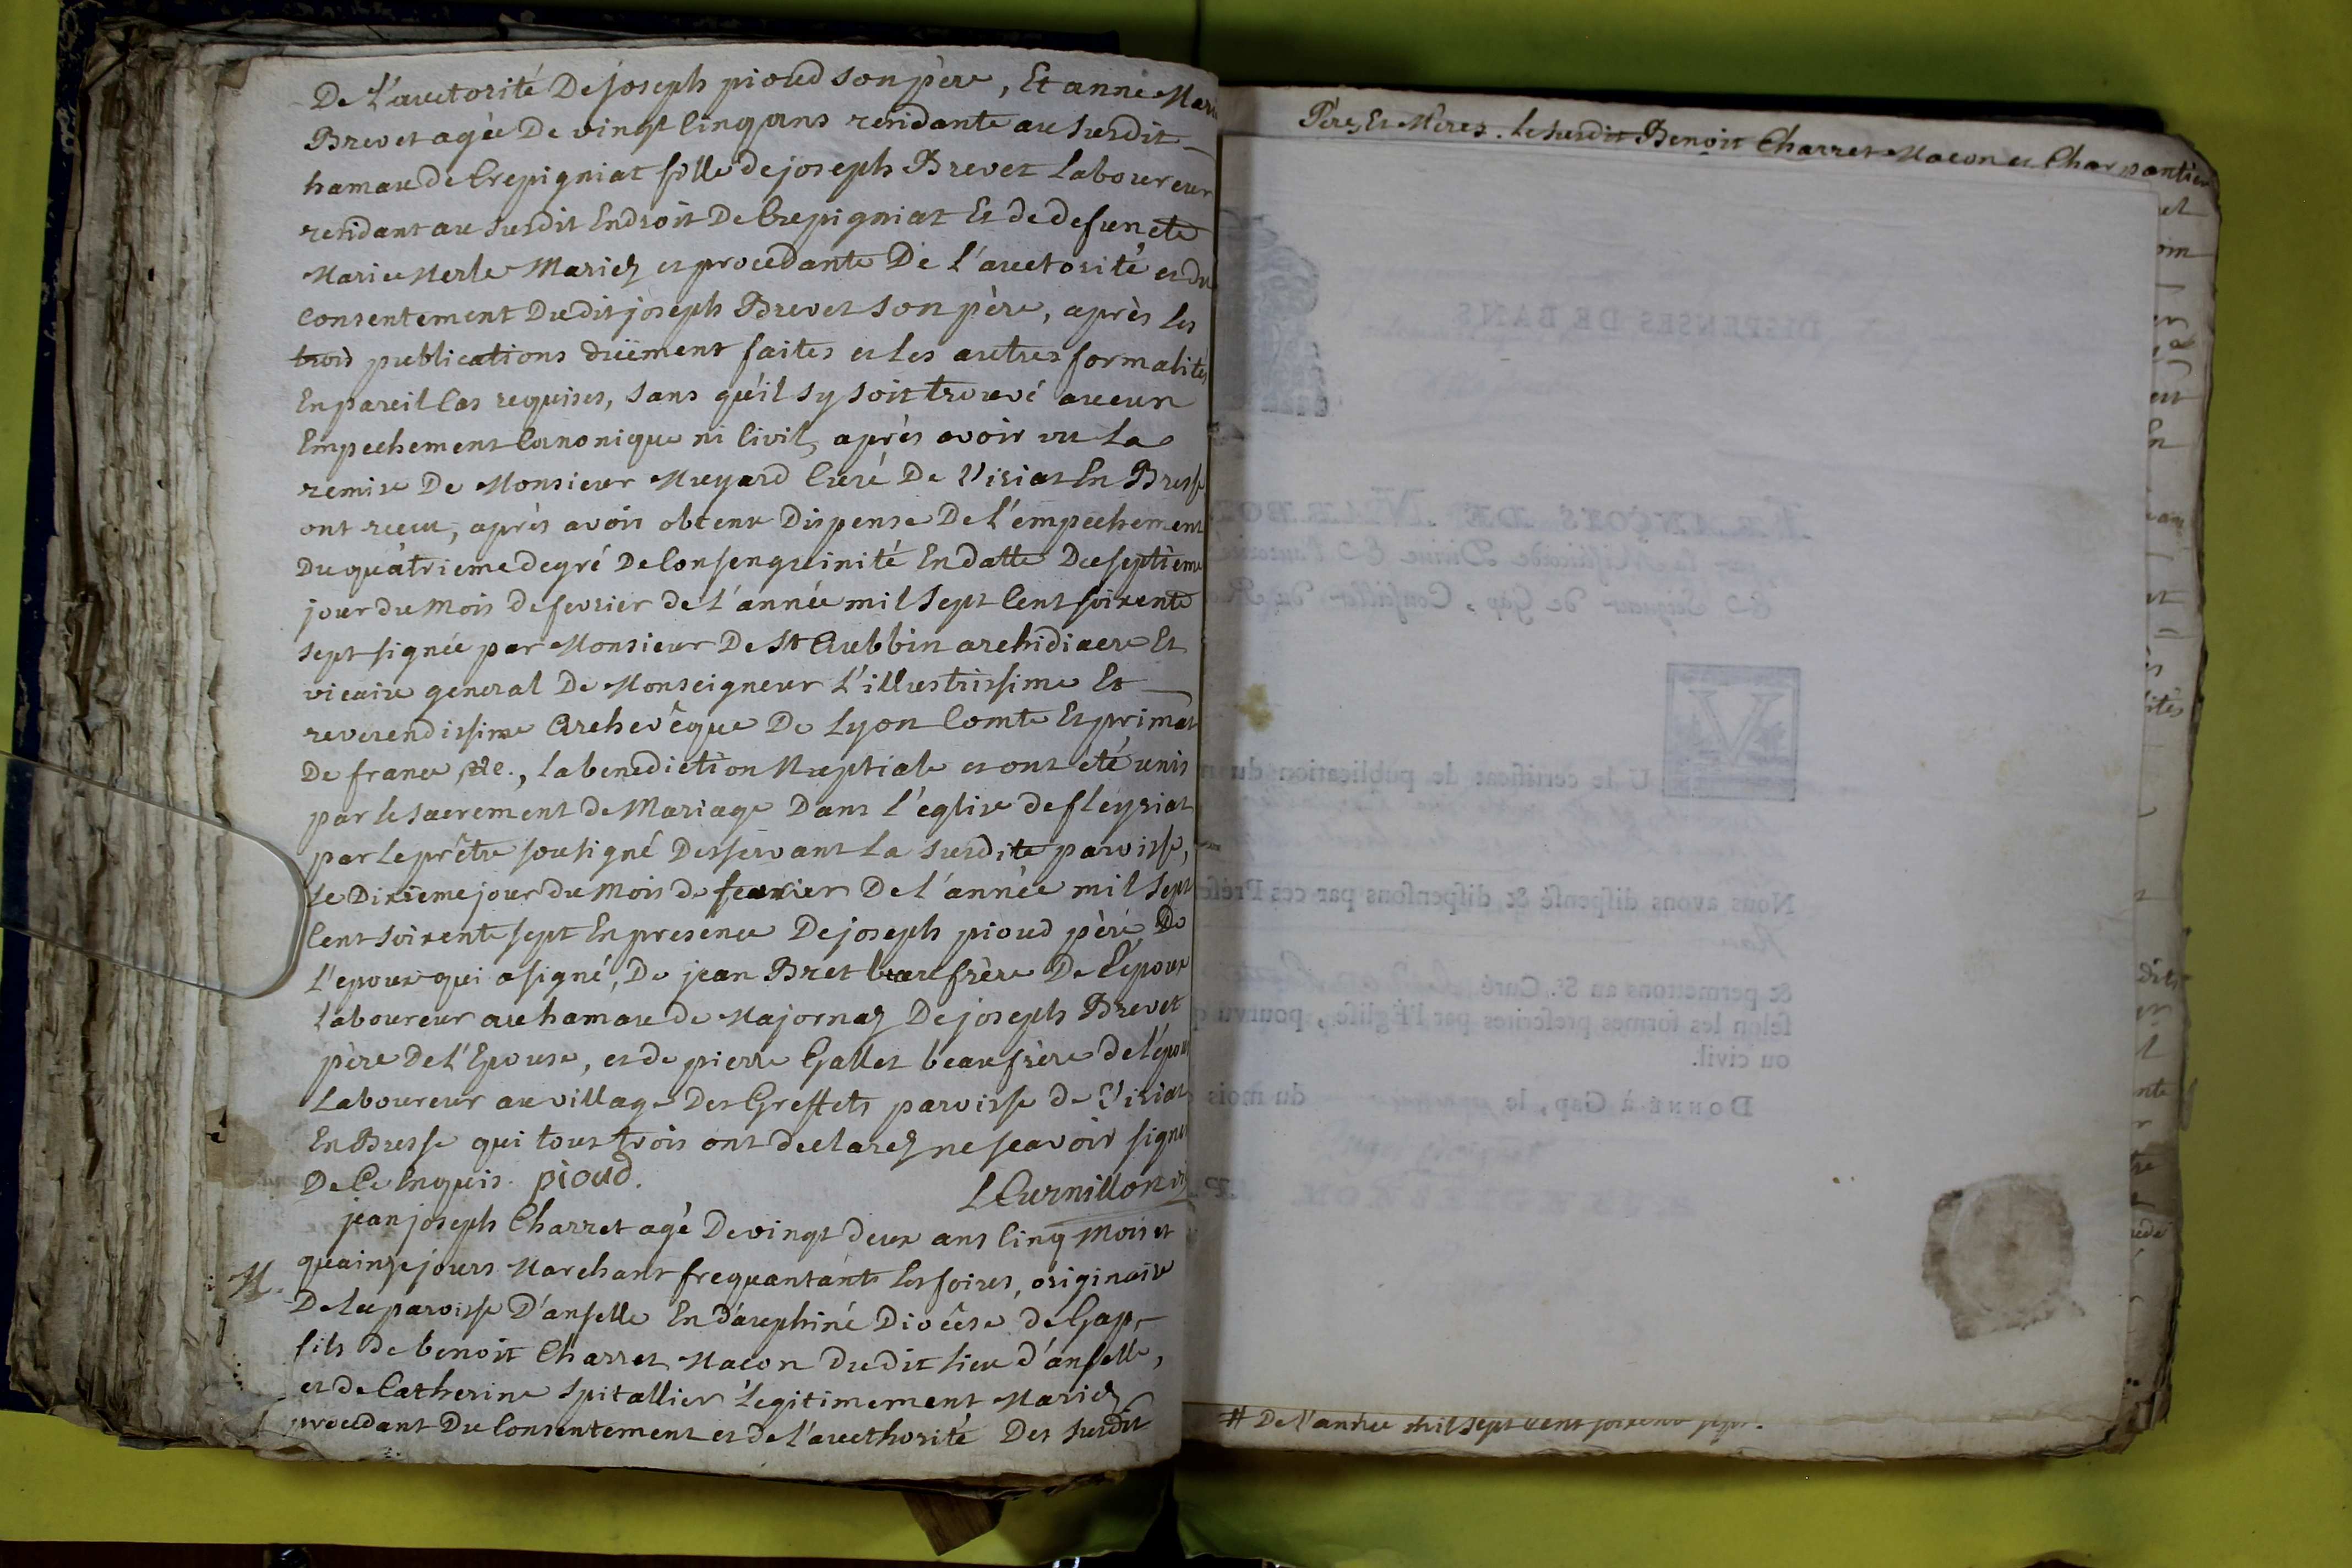 De L'auctorité De joseph pioud son père, Et anne Marie
Brevet agée De vingt Cinq ans residante au susdit
hamau de Crepigniat fille de joseph Brevet Laboureur
residant au susdit Endroit De Crepigniat Et de defuncte
Marie Merle Mariez et procedante De L'auctorité et du
Consentement Dudit joseph Brevet son père, après les
trois publications duëment faites et les autres formalités
En pareil Cas requises, sans qu'il sy soit trouvé aucun
Empechement Canonique ni Civil, après avoir vu La
remise De Monsieur Muyard Curé De Viriat En Bresse
ont recu, après avoir obtenu Dispense De L'empechement
Du quatrieme degré De Consenguinité En datte Du septième
jour du Mois de fevrier de L'année mil Sept Cent soixente
sept signée par Monsieur De St Aubbin archidiacre Et
vicaire general De Monseigneur L'illustrissime Et
reverendissime Archevêque De Lyon Comte Et primat
De france &c., La benediction Nuptiale et ont été unis
par le sacrement de Mariage Dans L'eglise de fleyriat
par Le prêtre sousigné Desservant La susdite paroisse,
Le Dixieme jour du Mois de fevrier De L'année mil Sept
Cent soixente sept En presence De joseph pioud père De
L'epoux qui a signé, De jean Bret beaufrère De L'epoux
Laboureur au hamau de Majornaz De joseph Brevet
père De L'Epouse, et de pierre Gallet beaufrère de L'epoux
Laboureur au village Des Greffets paroisse de Viriat
En Bresse qui tous trois ont declarez ne scavoir signer
De Ce Enquis. pioud.
LCurnillon
jean joseph Charret agé De vingt deux ans Cinq Mois et
quainze jours Marchant frequantants Les foires, originaire
M.
De La paroisse D'anselle En dauphiné Diocêse de Gap,
fils de benoit Charret Macon dudit Lieu d'anselle,
et de Catherine Spitallier Legitimement Mariez
procedant Du Consentement et de L'aucthorité Des susdit
Pères Et Mères. Le susdit Benoit Charret Macon et Charpantier
DISPENSES DE BANS
FRANÇOIS DE NARBON
par la Miséricorde Divine & l'autorité
& Seigneur de Gap, Conseiller du R
VU le certificat de publication du
Nous avons dispensé & dispensons par ces Prése
& permettons au Sr. Curé
selon les formes prescrites par l'Église, pourvu q
ou civil.
DONNÉ à Gap, le
du mois
# De L'année mil sept cent soixente sept.